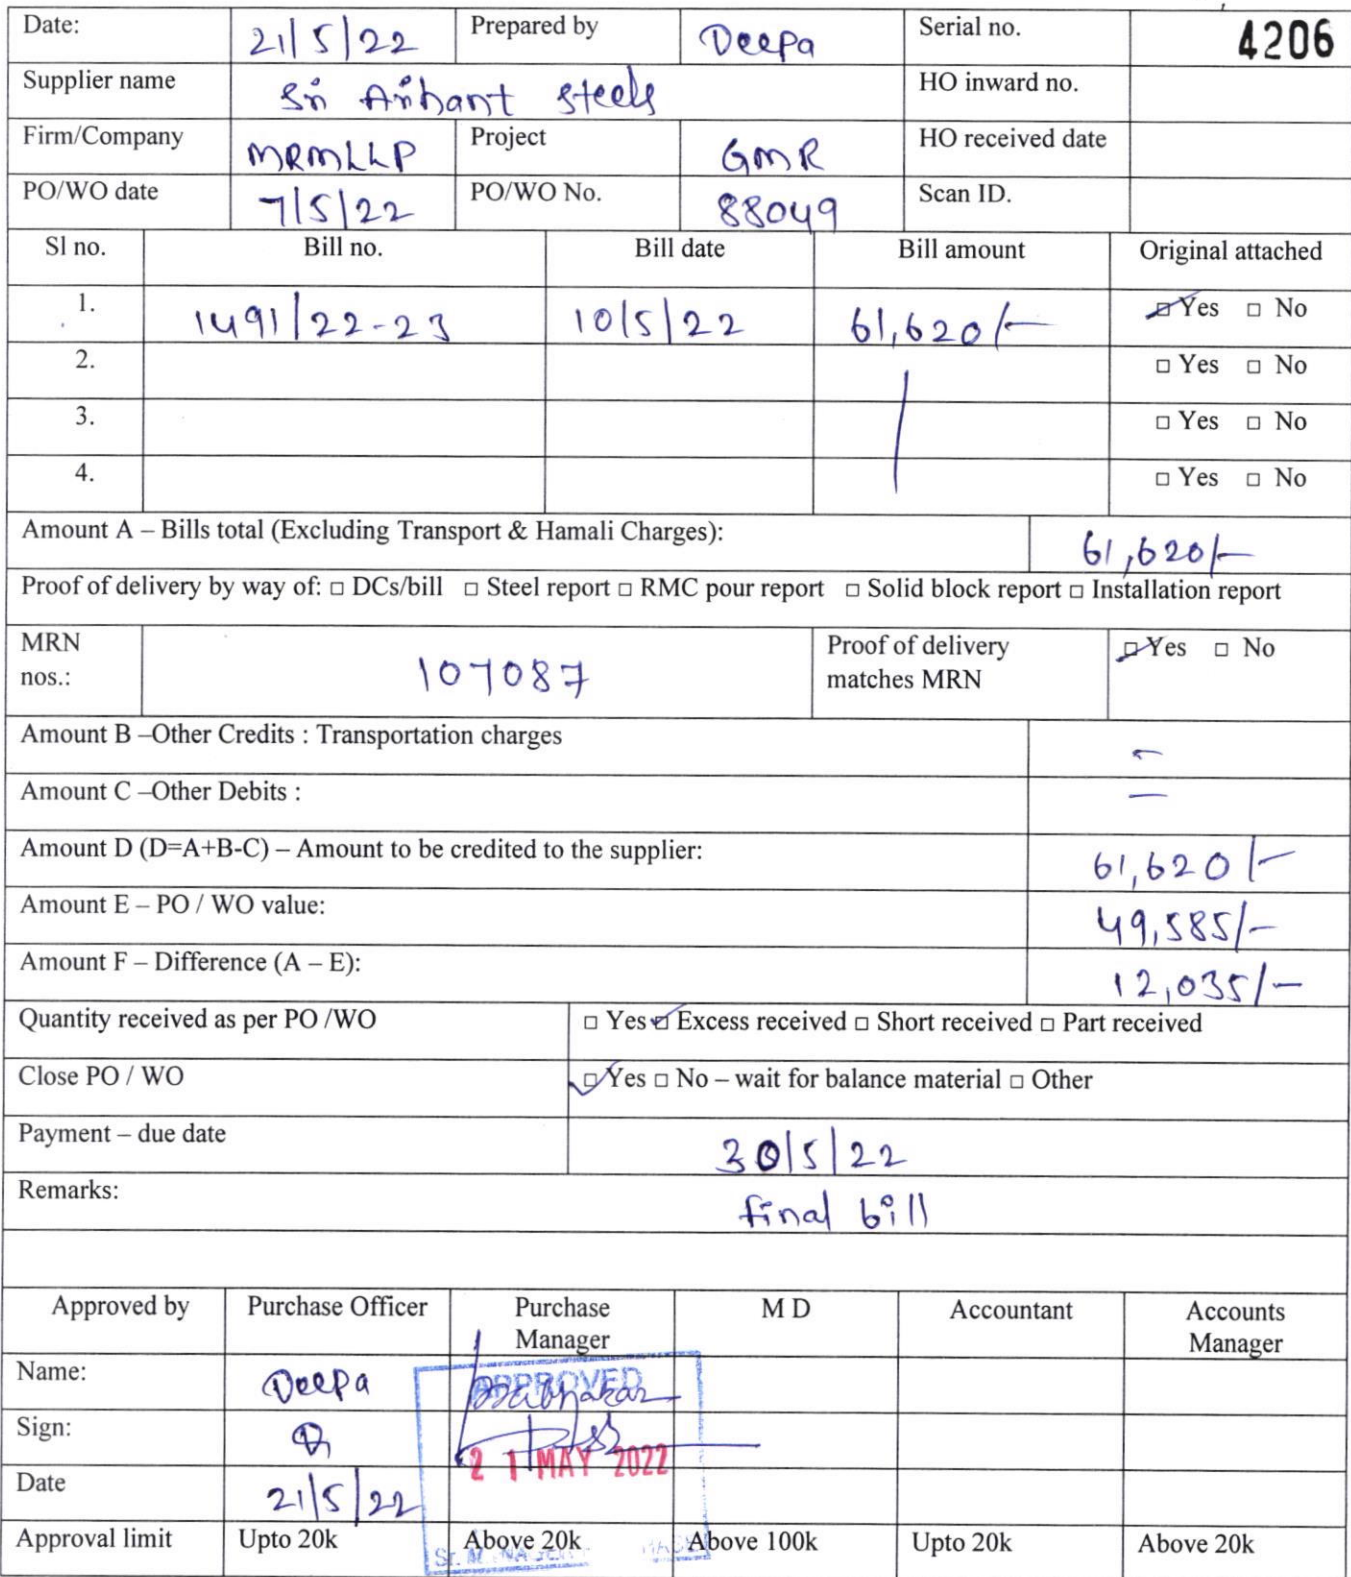 Date: 21/5/22 Prepared by Deepa Serial no. 4206
Supplier name Sri Arihant Steels HO inward no.
Firm/Company MRMLLP Project GMR HO received date
PO/WO date 7/5/22 PO/WO No. 88049 Scan ID.
Sl no. Bill no. Bill date Bill amount Original attached
1. 1491/22-23 10/5/22 61,620/- ☑ Yes □ No
2. □ Yes □ No
3. □ Yes □ No
4. □ Yes □ No
Amount A – Bills total (Excluding Transport & Hamali Charges): 61,620/-
Proof of delivery by way of: □ DCs/bill □ Steel report □ RMC pour report □ Solid block report □ Installation report
MRN nos.: 107087 Proof of delivery matches MRN ☑ Yes □ No
Amount B –Other Credits : Transportation charges -
Amount C –Other Debits : -
Amount D (D=A+B-C) – Amount to be credited to the supplier: 61,620/-
Amount E – PO / WO value: 49,585/-
Amount F – Difference (A – E): 12,035/-
Quantity received as per PO /WO □ Yes ☑ Excess received □ Short received □ Part received
Close PO / WO ☑ Yes □ No – wait for balance material □ Other
Payment – due date 30/5/22
Remarks: final bill
Approved by Purchase Officer Purchase Manager M D Accountant Accounts Manager
Name: Deepa Prabhakar
APPROVED
Sign:
21 MAY 2022
Date 21/5/22
Approval limit Upto 20k Above 20k Above 100k Upto 20k Above 20k